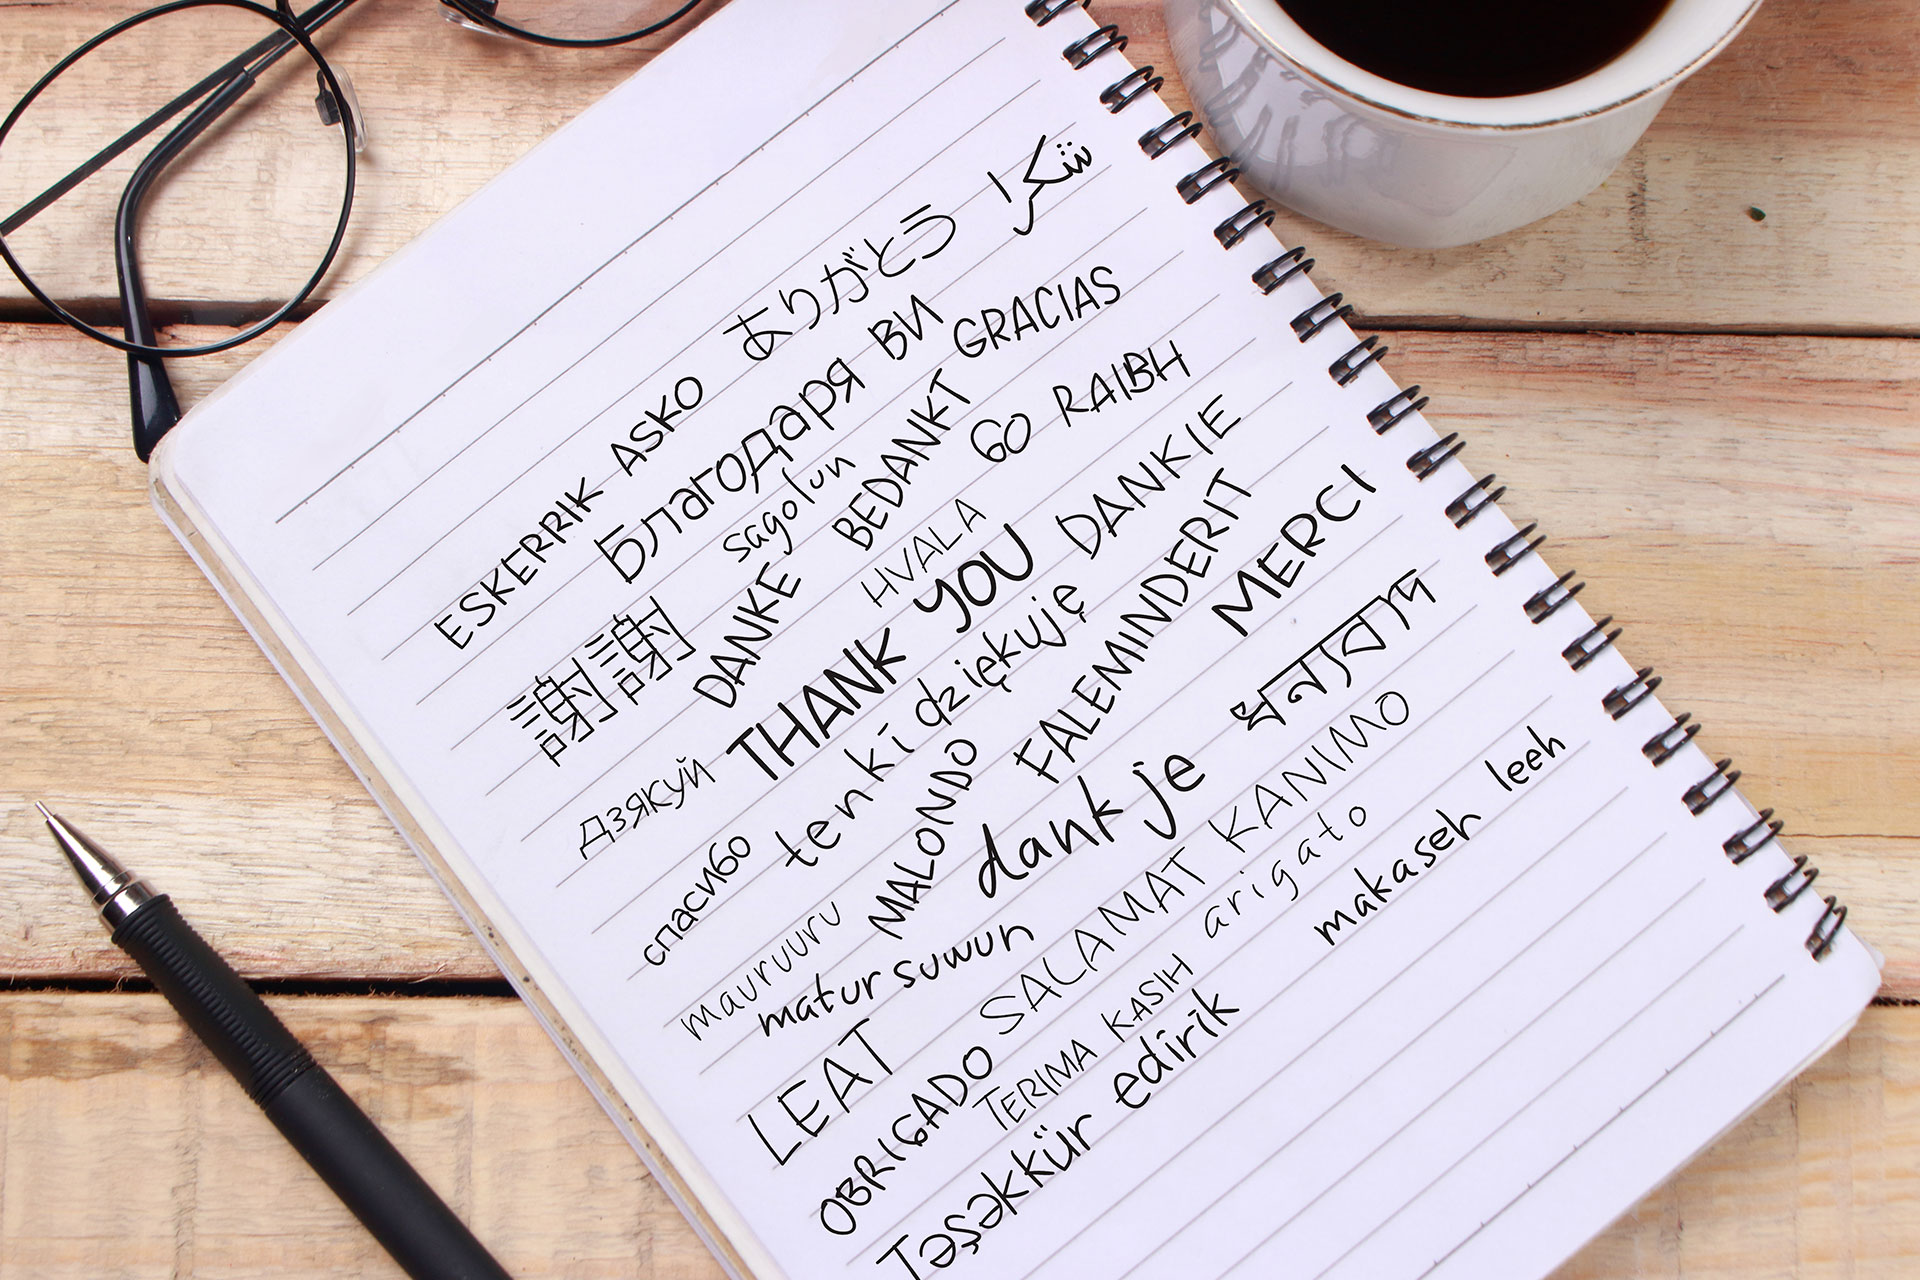 شكرا
ありがとう
ESKERRIK ASKO
Благодаря ВИ
GRACIAS
sagolun
BEDANKT
GO RAIBH
謝謝
DANKE
HVALA
DANKIE
THANK YOU
FALEMINDERIT
MERCI
дзякуй
tenkī dziękuję
ধন্যবাদ
спасибо
MALONDO
dank je
SALAMAT KANIMO
mauruuru
matur suwun
arigato
makaseh leeh
LEAT
TERIMA KASIH
OBRIGADO
Təşəkkür edīrīk